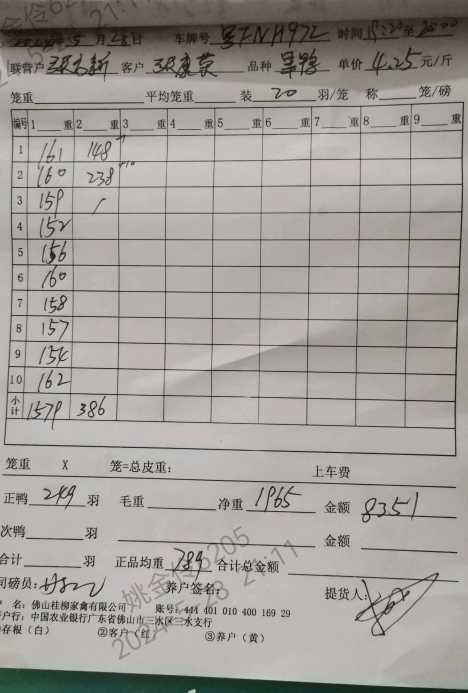 5月28日 车牌号 时间 至
联营户 客户 张康荣 品种 单价 4.25 元/斤
笼重 平均笼重 装 20 羽/笼 称 笼/磅
编号 1 重 2 重 3 重 4 重 5 重 6 重 7 重 8 重 9 重
1 161 148
2 160 238
3 159 /
4 152
5 156
6 160
7 158
8 157
9 154
10 162
小计 1579 386
笼重 X 笼=总皮重: 上车费
正鸭 249 羽 毛重 净重 1965 金额 8351
次鸭 羽 金额
合计 羽 正品均重 789 合计总金额
司磅员: 养户签名: 提货人:
名: 佛山桂柳家禽有限公司 账号: 444 401 010 400 169 29
户行: 中国农业银行广东省佛山市三水区三水支行
存根（白） ②客户（红 ③养户（黄）
姚金伶6205
2024-5-28 21:11